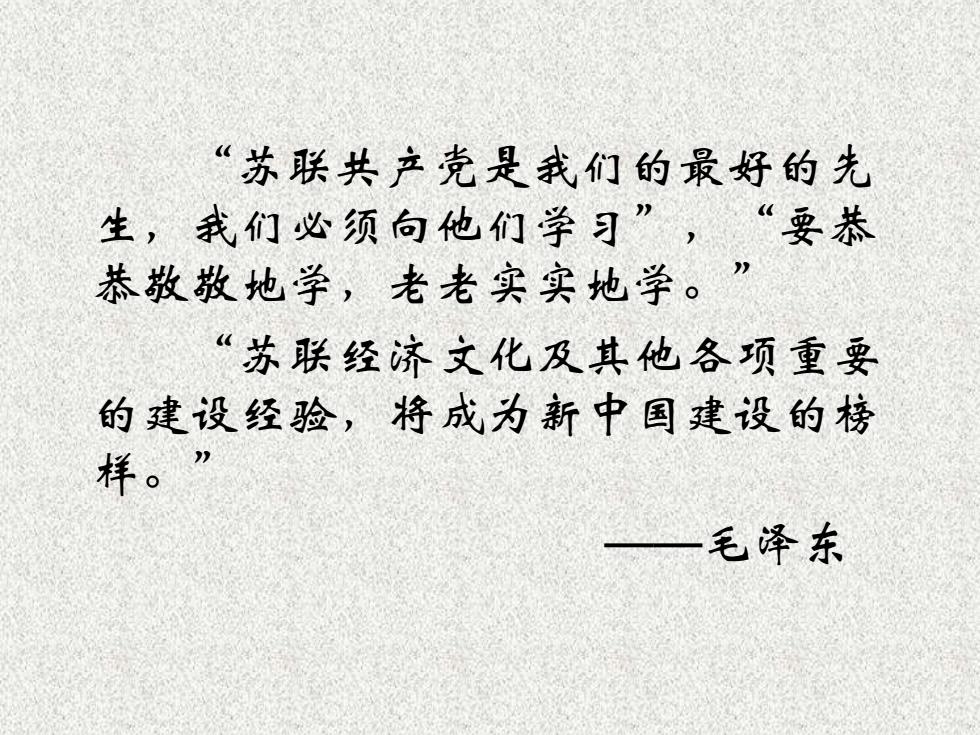 “苏联共产党是我们的最好的先
生，我们必须向他们学习”，“要恭
恭敬敬地学，老老实实地学。”
“苏联经济文化及其他各项重要
的建设经验，将成为新中国建设的榜
样。”
——毛泽东